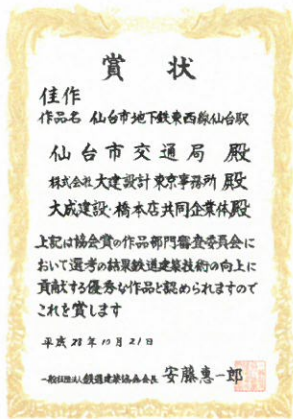 賞状
佳作
作品名 仙台市地下鉄東西線仙台駅
仙台市交通局 殿
株式会社大建設計東京事務所 殿
大成建設・橋本店共同企業体殿
上記は協会賞の作品部門審査委員会に
おいて選考の結果鉄道建築技術の向上に
貢献する優秀な作品と認められますので
これを賞します
平成28年10月21日
一般社団法人鉄道建築協会会長 安藤恵一郎